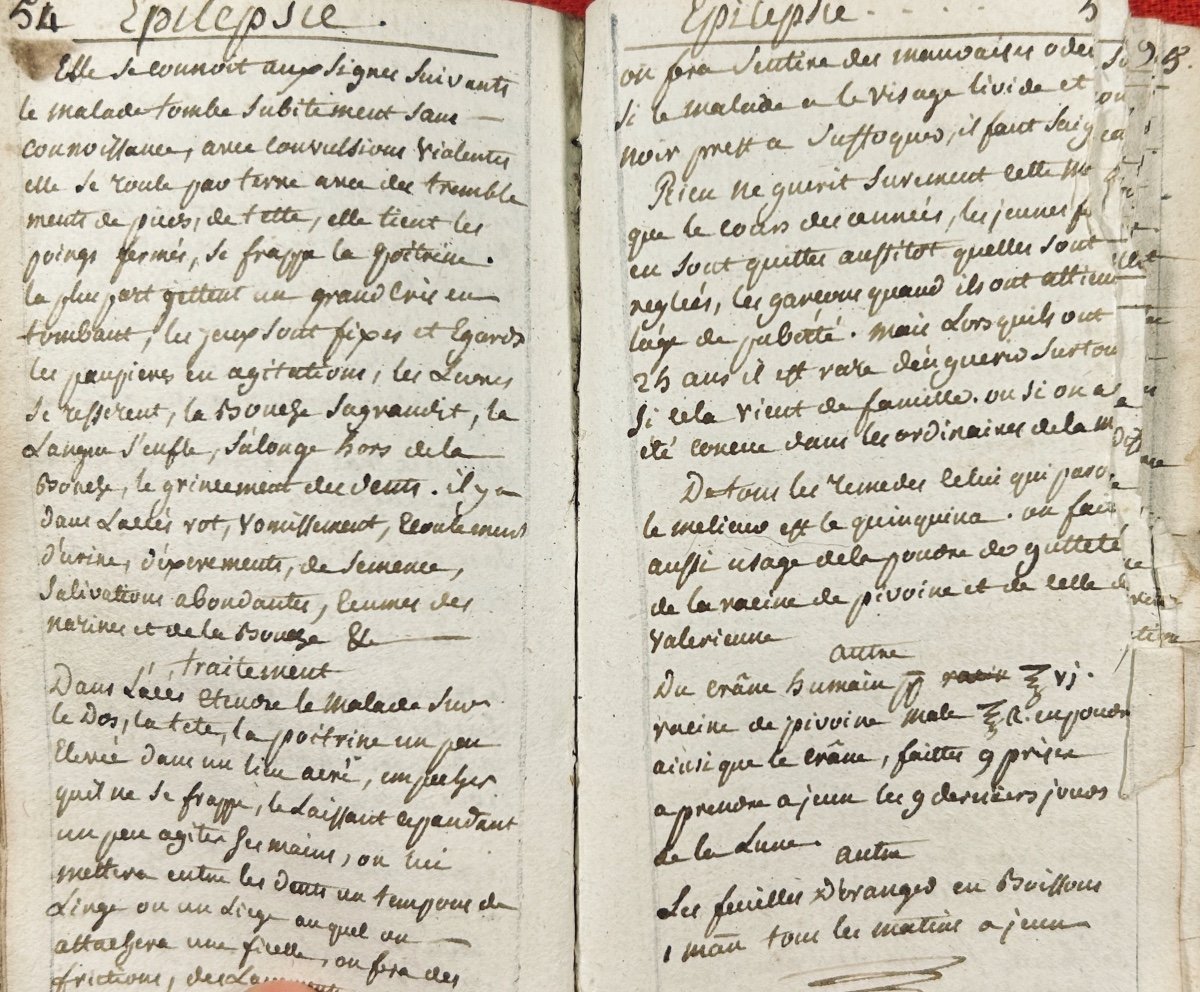 54 Epilepsie.
Elle se connoit aux signes suivants
le malade tombe subitement sans
connoissance, avec convulsions violentes
elle se roule par terre avec des tremble
ments de pieds, de tette, elle tient les
poings fermés, se frappe la poitrine.
la plus part gettent un grand cris en
tombant, les yeux sont fixes et Egarés
les paupieres en agitations, les Levres
se resserent, la Bouche sagrandit, la
Langue s'enfle, s'alonge hors de la
Bouche, le grincement des dents. il y a
dans Laccés rot, vomissement, Ecoulement
d'urine, d'exerements, de semence,
salivations abondantes, Ecumes des
narines et de la Bouche &c
traitement
Dans L'accés etendre le Malade sur
le Dos, la tete, la poitrine un peu
Elevée dans un lieu aeré, empecher
quil ne se frappe, le Laissant cependant
un peu agiter ses mains, on lui
mettera entre les dents un tempons de
Linge ou un Liege au quel on
attachera une ficelle, on fera des
frictions, des
Epilepsie 5
on fera sentire des mauvaises odeu
si le malade a le visage livide et
noir prest a suffoquer, il faut saig
Rien ne guerit surement cette m
que le cours des années, les jeunes f
en sont quittes aussitot quelles sont
regleés, les garcons quand ils ont attein
l'age de puberté. mais Lorsquils ont
25 ans il est rare d'en guerir surtou
si cela vient de famille. ou si on a
été concue dans les ordinaires de la m
De tous les remedes celui qui paro
le melieur est le quinquina. on fait
aussi usage de la poudre de gutteté
de la racine de pivoine et de celle d
valerienne
autre
Du crâne humain ℥ vj.
racine de pivoine male ℥ 2. en poudr
ainsi que le crâne, faittes 9 prises
a prendre a jeun les 9 derniers jours
de la Lune.
autre
Les feuilles d'oranger en Boissons
1 man tous les matins a jeun